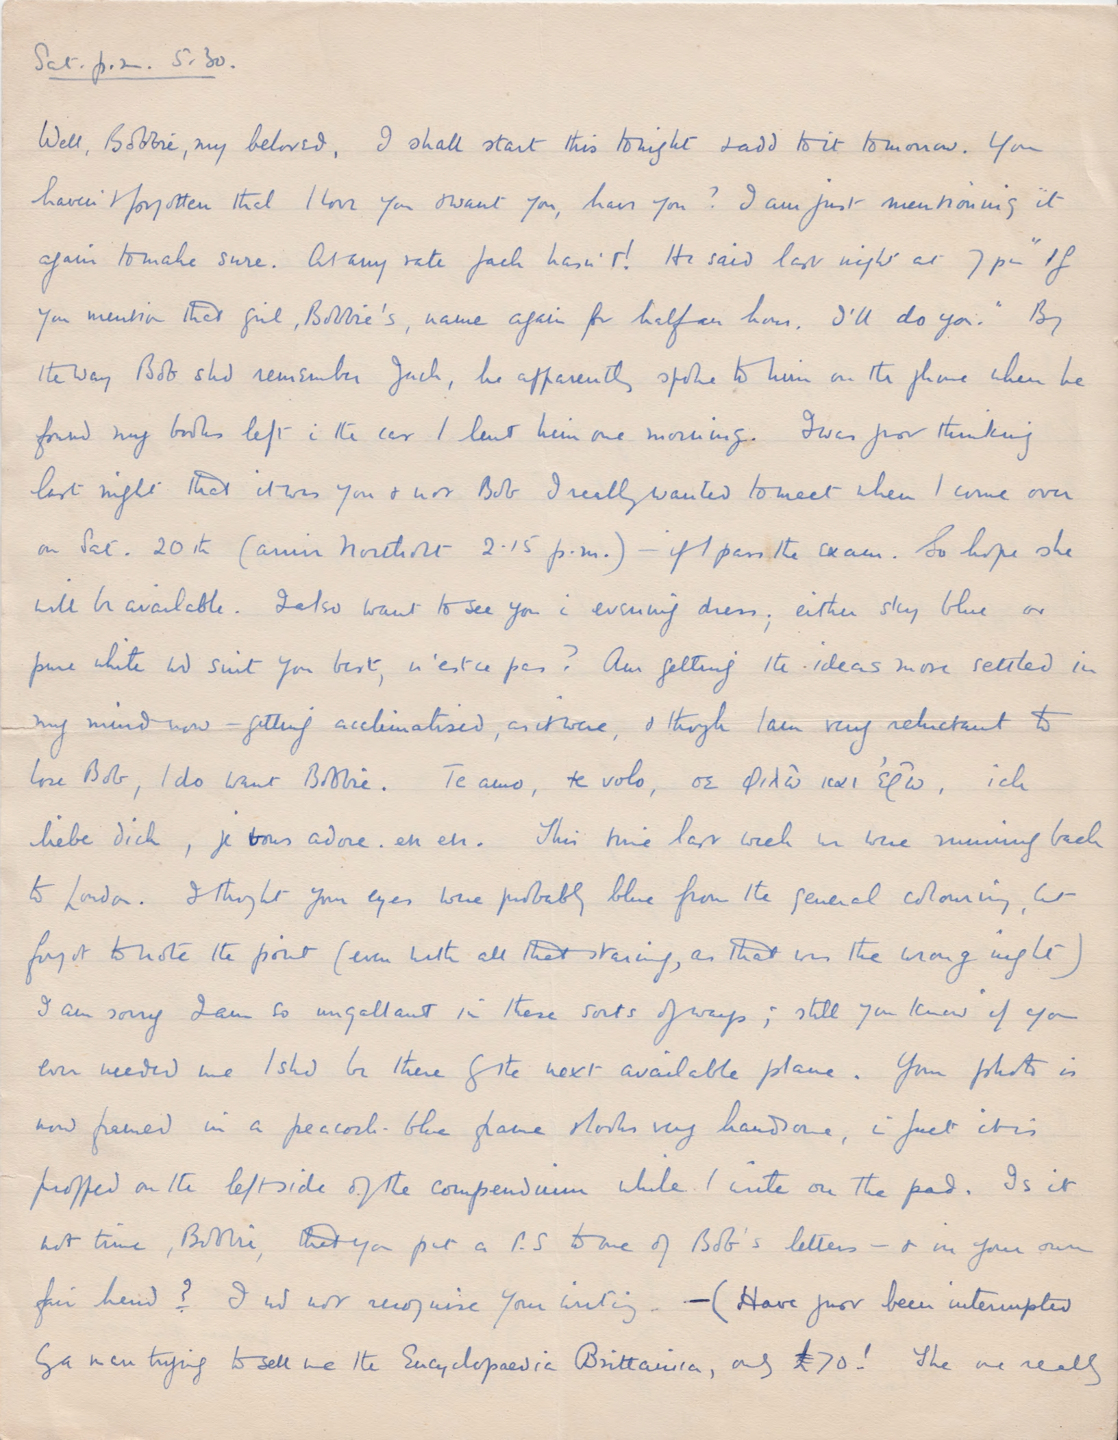 Sat. p.m. 5.30.
Well, Bobbie, my beloved, I shall start this tonight & add to it tomorrow. You
haven't forgotten that I love you & want you, have you? I am just mentioning it
again to make sure. At any rate Jack hasn't! He said last night at 7 pm "If
you mention that girl, Bobbie's, name again for half an hour, I'll do you." By
the way Bob shd remember Jack, he apparently spoke to him on the phone when he
found my books left i the car I lent him one morning. I was just thinking
last night that it was you & not Bob I really wanted to meet when I come over
on Sat. 20th (arriv Northolt 2.15 p.m.) – if I pass the exam. So hope she
will be available. I also want to see you i evening dress; either sky blue or
pure white wd suit you best, n'est ce pas? Am getting the ideas more settled in
my mind now – getting acclimatised, as it were, & though I am very reluctant to
lose Bob, I do want Bobbie. Te amo, te volo, σε φιλῶ και ἐρῶ, ich
liebe dich, je vous adore. en en. This time last week we were running back
to London. I thought your eyes were probably blue from the general colouring, but
forgot to note the point (even with all that staring, as that was the wrong night)
I am sorry I am so ungallant in these sorts of ways; still you know if you
ever needed me I shd be there by the next available plane. Your photo is
now framed in a peacock-blue frame & looks very handsome, i fact it is
propped on the left side of the compendium while I write on the pad. Is it
not time, Bobbie, that you put a P.S to one of Bob's letters – & in your own
fair hand? I wd not recognise your writing. – (Have just been interrupted
by a man trying to sell me the Encyclopaedia Brittanica, only £70! The one really